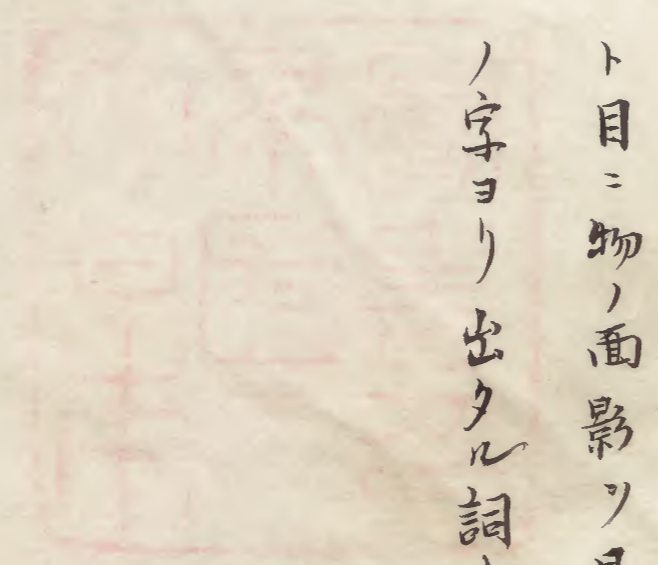 ト目ニ物ノ面影ツ
ノ字ヨリ出タル詞